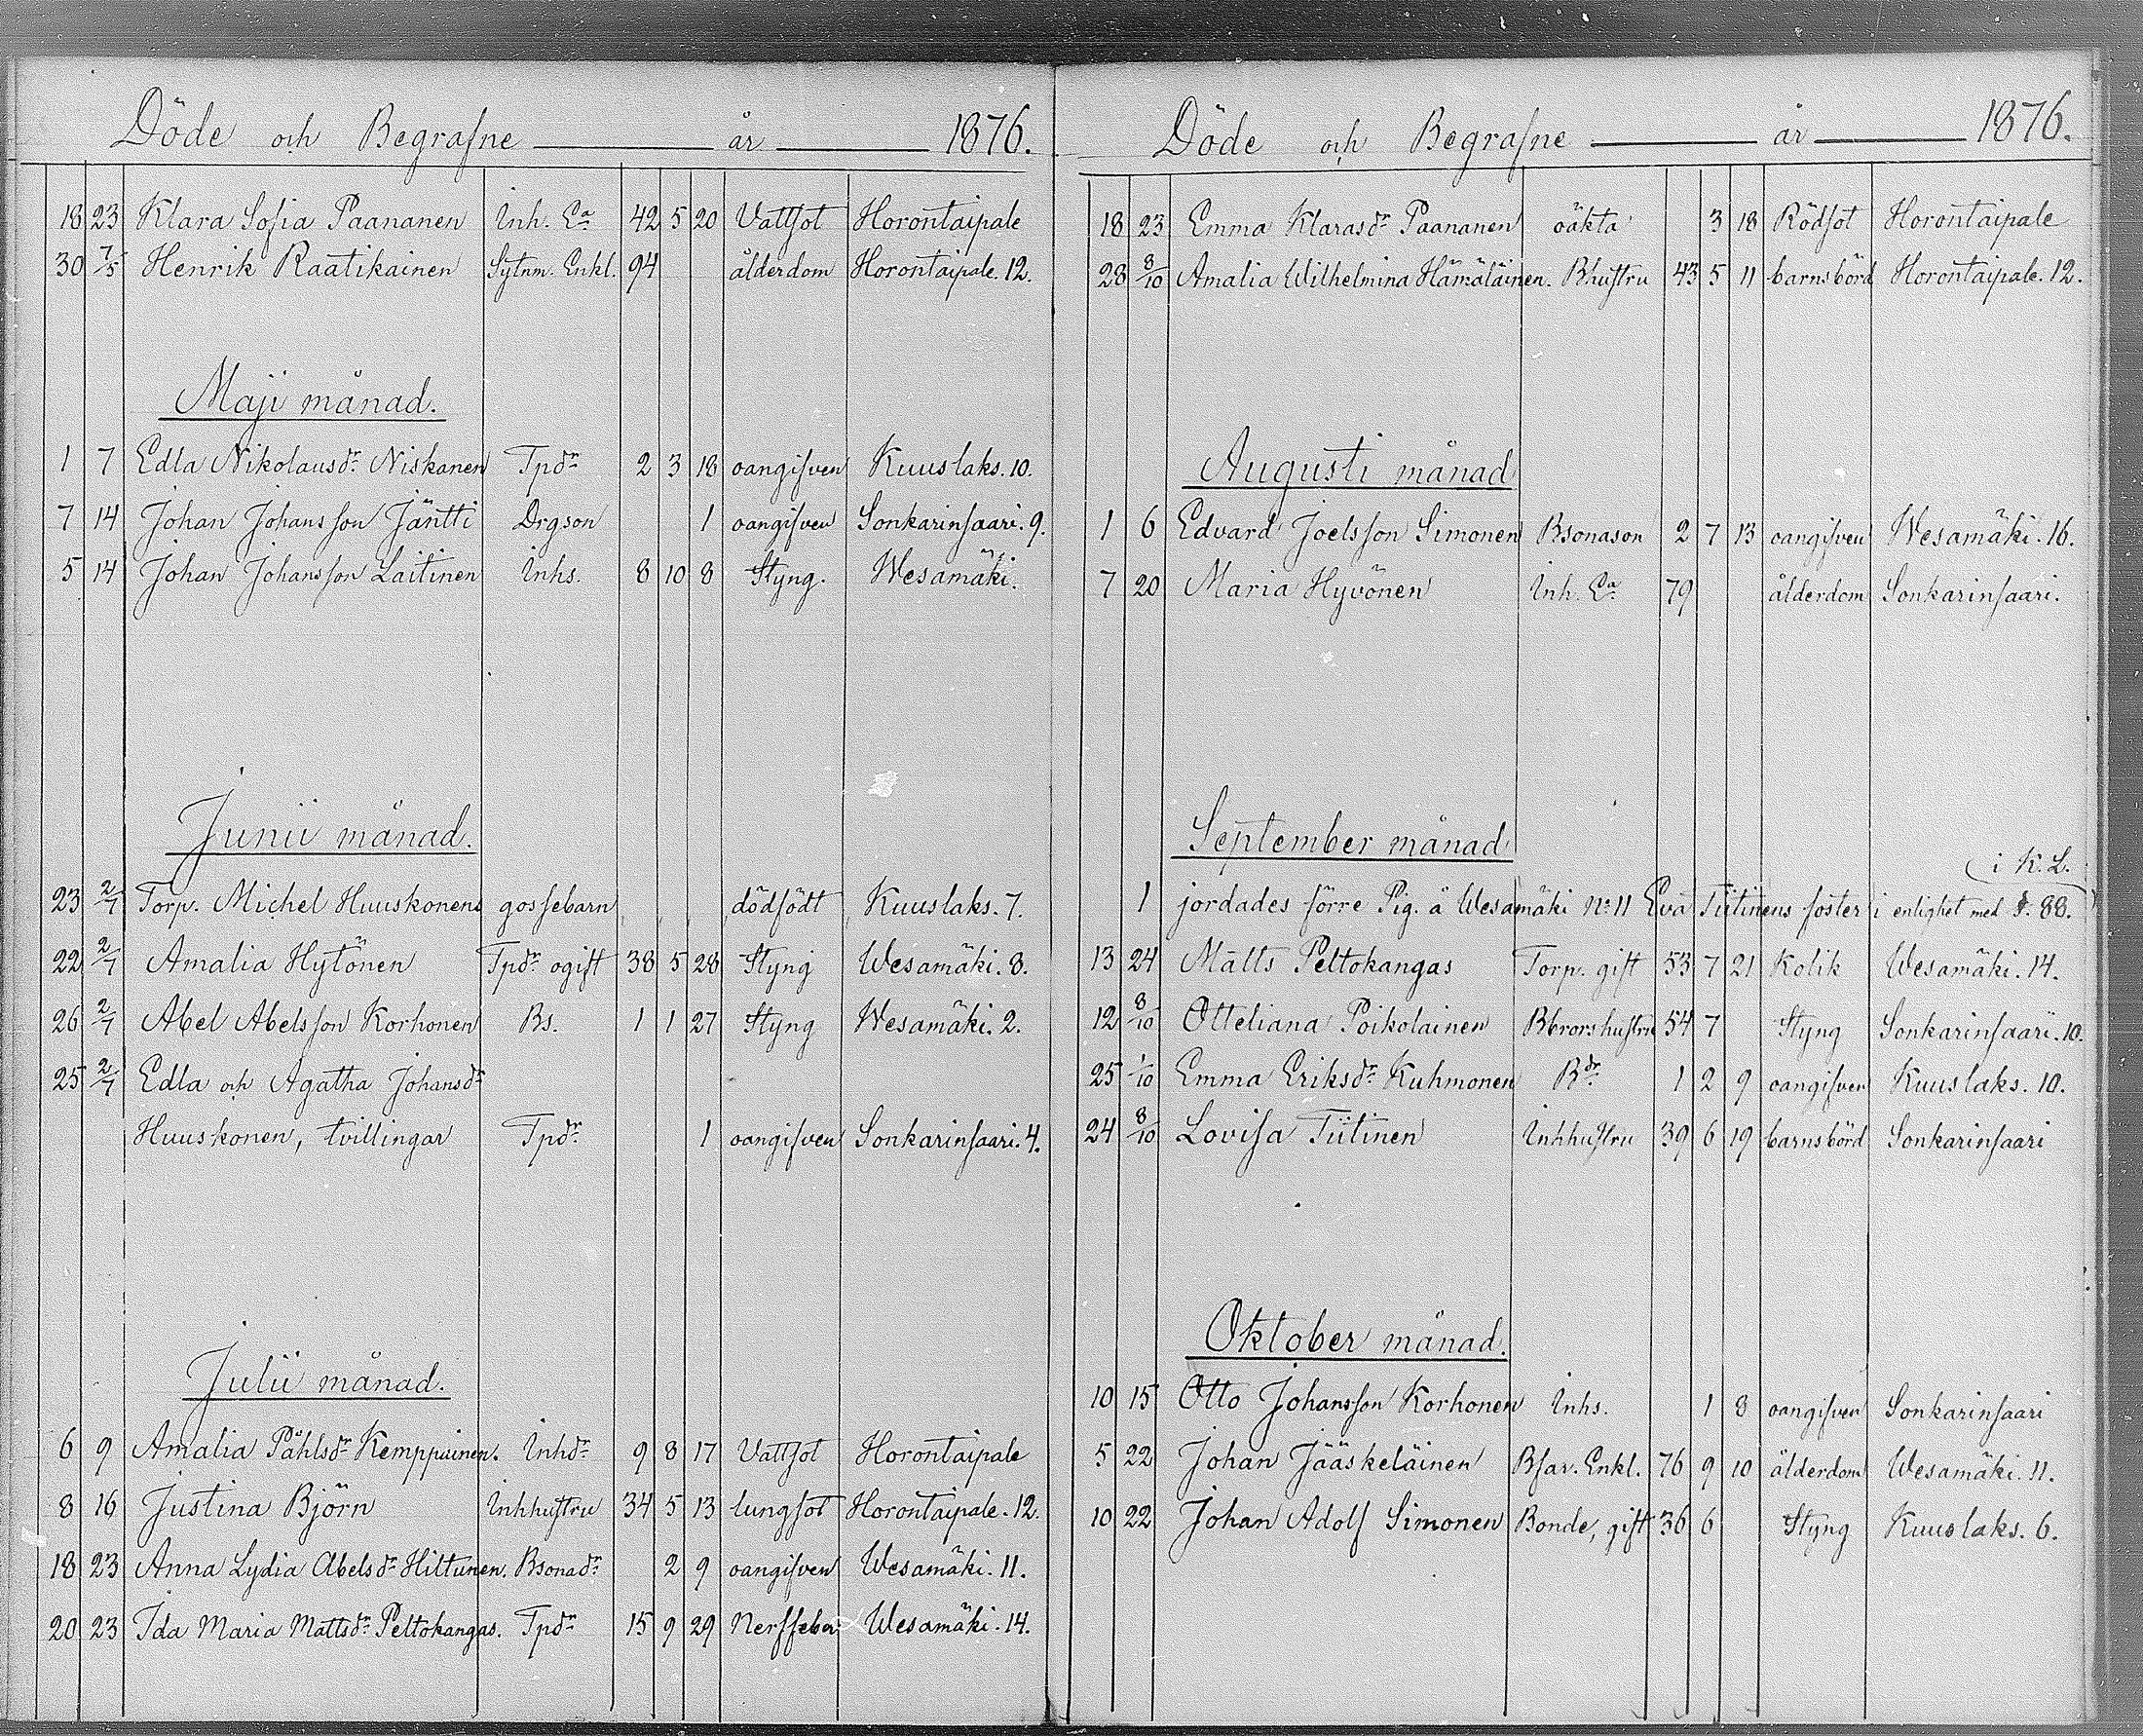 Döde och Begrafne år 1876.
18 23 Klara Sofia Paananen Inh. Ea 42 5 20 Vattsot Horontaipale
30 7/5 Henrik Raatikainen Sytnm. Enkl. 94 ålderdom Horontaipale. 12.
Maji månad.
1 7 Edla Nikolausdr. Niskanen Tpdr 2 3 18 oangifven Kuuslaks. 10.
7 14 Johan Johansson Jäntti Drgson 1 oangifven Sonkarinsaari. 9.
5 14 Johan Johansson Laitinen Inhs. 8 10 8 Styng. Wesamäki.
Junii månad.
23 2/7 Torp. Michel Huuskonens gossebarn dödfödt Kuuslaks. 7.
22 2/7 Amalia Hytönen Tpdr ogift 38 5 28 Styng Wesamäki. 8.
26 2/7 Abel Abelsson Korhonen Bs. 1 1 27 Styng Wesamäki. 2.
25 2/7 Edla och Agatha Johansdr
Huuskonen, tvillingar Tpdr 1 oangifven Sonkarinsaari. 4.
Julii månad.
6 9 Amalia Påhlsdr Kemppainen. Inhdr 9 8 17 Vattsot Horontaipale
8 16 Justina Björn Inhhustru 34 5 13 lungsot Horontaipale. 12.
18 23 Anna Lydia Abelsdr Hiltunen. Bsonadr 2 9 oangifven Wesamäki. 11.
20 23 Ida Maria Mattsdr Peltokangas. Tpdr 15 9 29 Nerffeber Wesamäki. 14.
Döde och Begrafne år 1876.
18 23 Emma Klarasdr Paananen oäkta 3 18 Rödsot Horontaipale
28 8/10 Amalia Wilhelmina Hämäläinen. Bhustru 43 5 11 barnsbörd Horontaipale. 12.
Augusti månad
1 6 Edvard Joelsson Simonen Bsonason 2 7 13 oangifven Wesamäki. 16.
7 20 Maria Hyvönen Inh. Ea 79 ålderdom Sonkarinsaari.
September månad
i K. L.
1 jordades förre Pig. å Wesamäki No 11 Eva Tiitinens foster i enlighet med §. 88.
13 24 Matts Peltokangas Torp. gift 53 7 21 Kolik Wesamäki. 14.
12 8/10 Otteliana Poikolainen Bbrorshustru 54 7 Styng Sonkarinsaari. 10.
25 1/10 Emma Eriksdr Kuhmonen Bdr 1 2 9 oangifven Kuuslaks. 10.
24 8/10 Lovisa Tiitinen Inhhustru 39 6 19 barnsbörd Sonkarinsaari
Oktober månad.
10 15 Otto Johansson Korhonen Inhs. 1 8 oangifven Sonkarinsaari
5 22 Johan Jääskeläinen Bfar. Enkl. 76 9 10 ålderdom Wesamäki. 11.
10 22 Johan Adolf Simonen Bonde, gift 36 6 Styng Kuuslaks. 6.